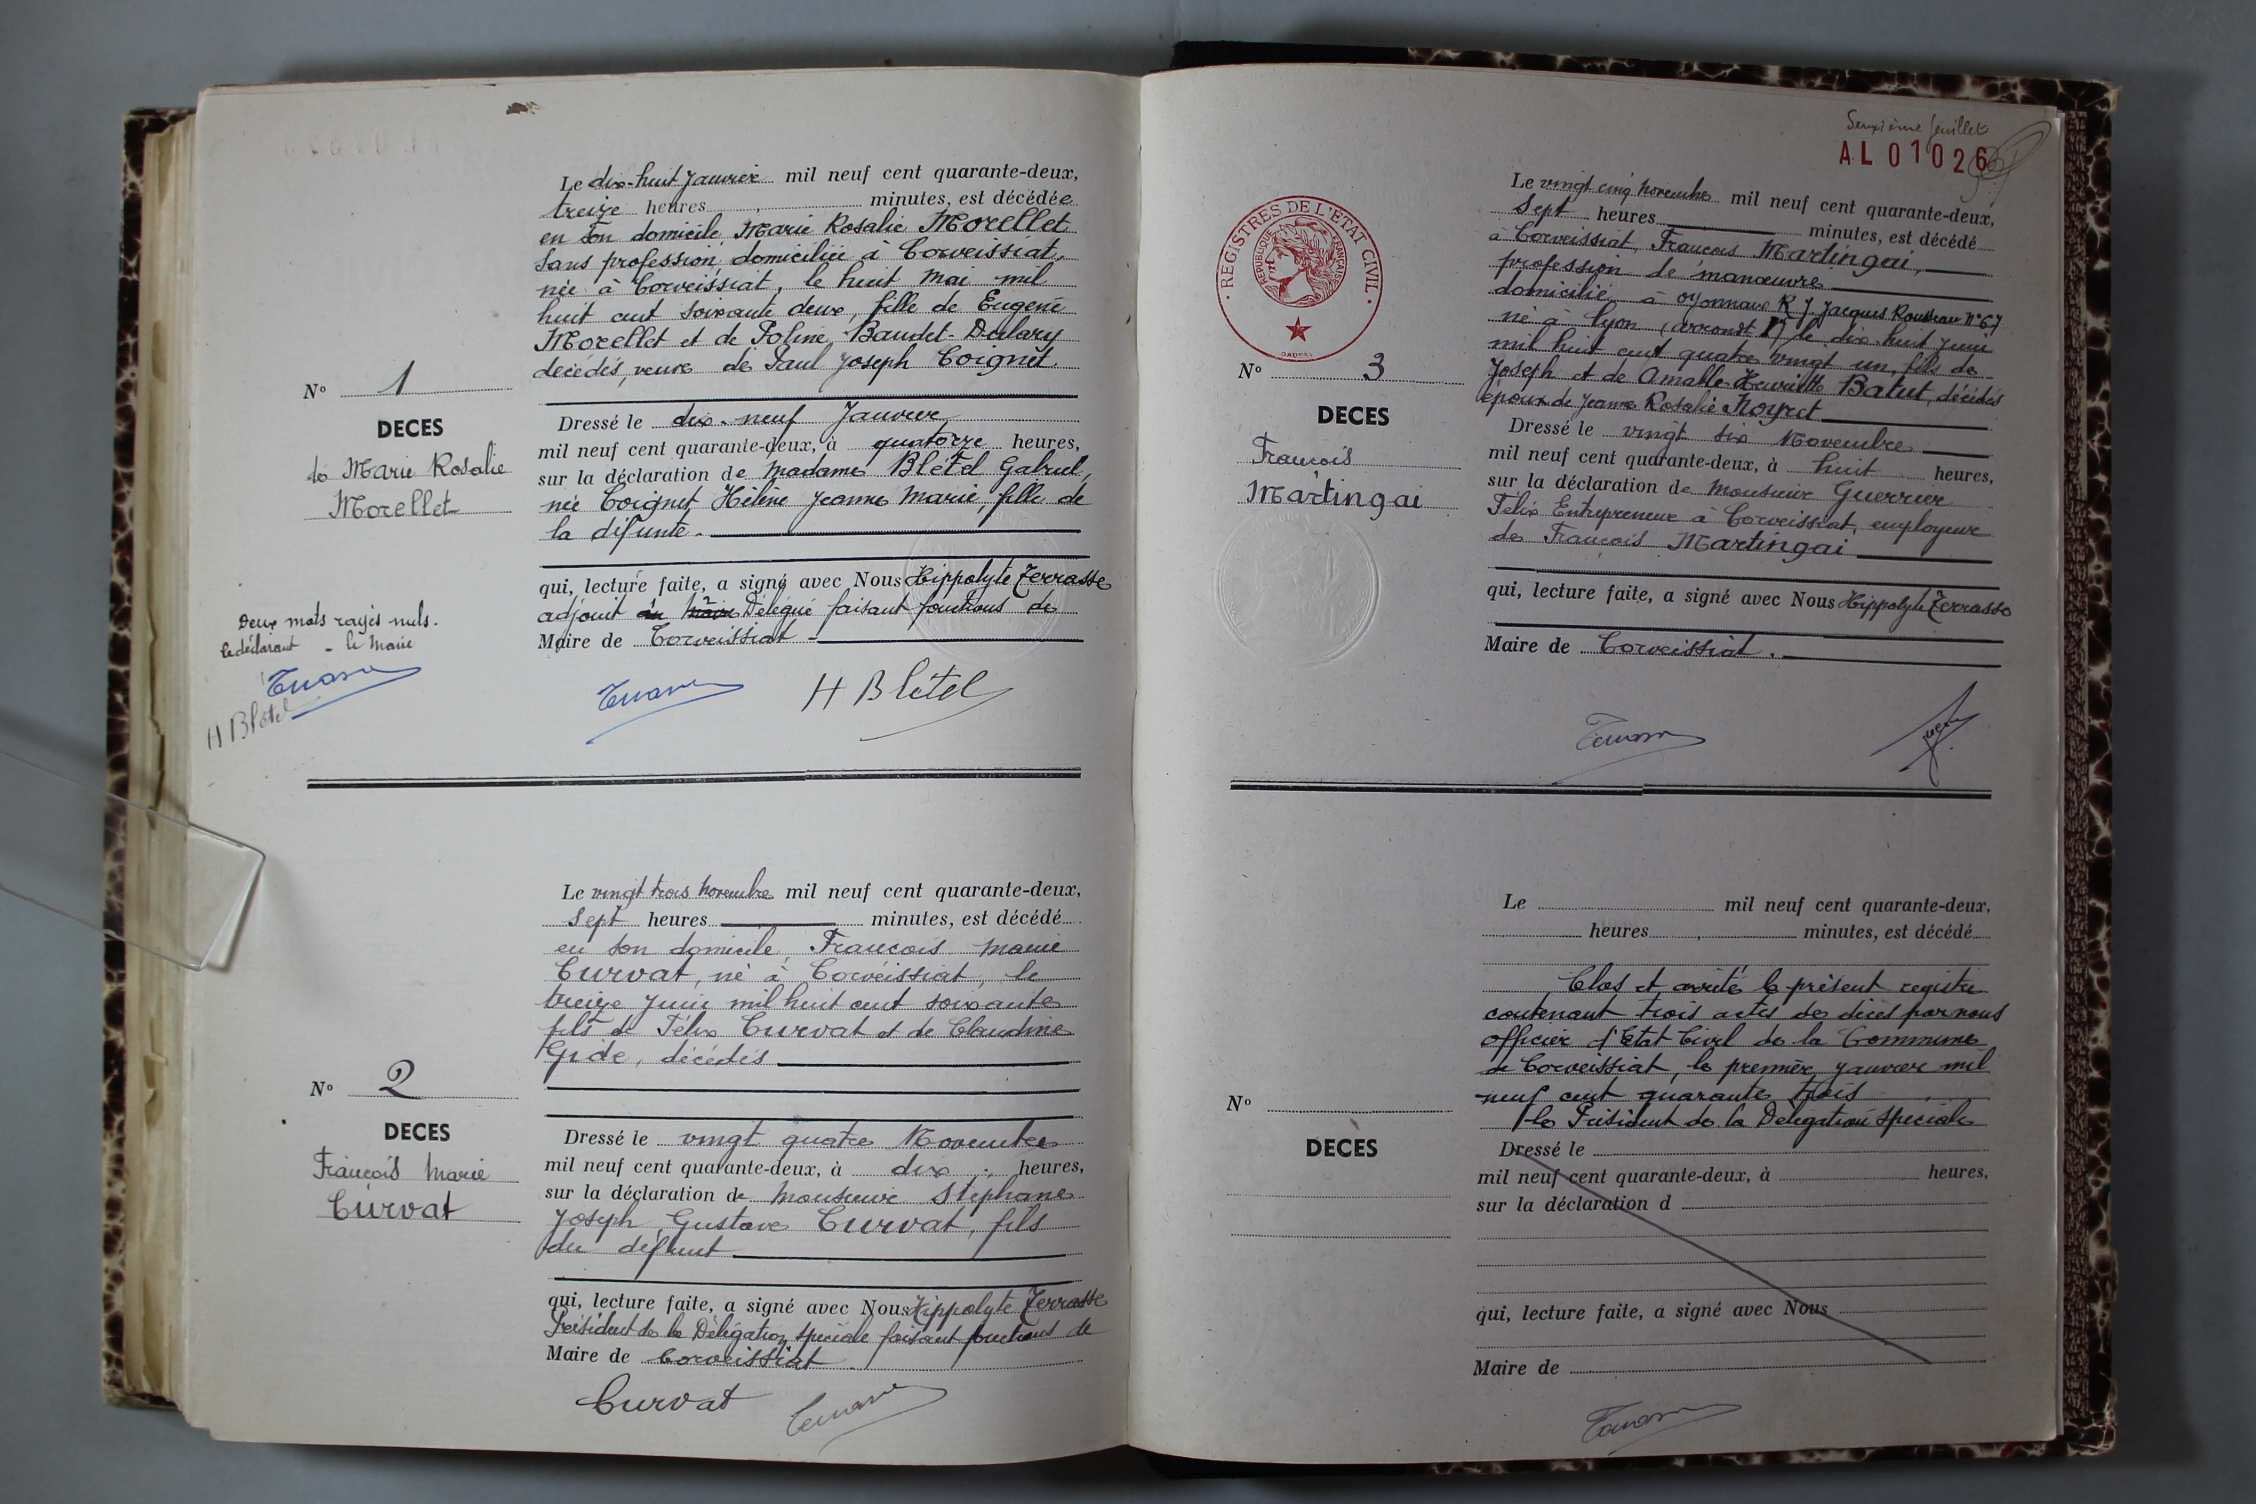 Le dix-huit Janvier mil neuf cent quarante-deux,
treize heures minutes, est décédée
en son domicile, Marie Rosalie Morellet
sans profession, domiciliée à Corveissiat,
née à Corveissiat, le huit Mai mil
huit cent soixante deux, fille de Eugène
Morellet et de Poline Baudet-Dulary
décédés, veuve de Paul Joseph Coignet
No 1
DECES
de Marie Rosalie
Morellet
Dressé le dix-neuf Janvier
mil neuf cent quarante-deux, à quatorze heures,
sur la déclaration de madame Blétel Gabriel,
née Coignet Hélène Jeanne Marie, fille de
la défunte.
qui, lecture faite, a signé avec Nous Hippolyte Terrasse
adjoint au Maire Délégué faisant fonctions de
Maire de Corveissiat
Deux mots rayés nuls.
Le déclarant - le Maire
Terrasse
H Blétel
Terrasse H Blétel
Le vingt trois novembre mil neuf cent quarante-deux,
sept heures minutes, est décédé
en son domicile, François Marie
Curvat, né à Corveissiat, le
treize Juin mil huit cent soixante
fils de Félix Curvat et de Claudine
Gide, décédés
No 2
DECES
François Marie
Curvat
Dressé le vingt quatre Novembre
mil neuf cent quarante-deux, à dix heures,
sur la déclaration de Monsieur Stéphane
Joseph Gustave Curvat, fils
du défunt
qui, lecture faite, a signé avec Nous Hippolyte Terrasse
Président de la Délégation spéciale faisant fonctions de
Maire de Corveissiat
Curvat Terrasse
Deuxième feuillet
AL 01026
REGISTRES DE L'ETAT CIVIL
REPUBLIQUE FRANÇAISE
Le vingt cinq novembre mil neuf cent quarante-deux,
Sept heures minutes, est décédé
à Corveissiat, François Martingai,
profession de manœuvre
domicilié à Oyonnax R J. Jacques Rousseau N°67
né à Lyon (arrondt le dix huit Juin
mil huit cent quatre vingt un, fils de
Joseph et de Amable Henriette Batut, décédés
époux de Jeanne Rosalie Noyret
No 3
DECES
François
Martingai
Dressé le vingt six Novembre
mil neuf cent quarante-deux, à huit heures,
sur la déclaration de Monsieur Guerrier
Félix Entrepreneur à Corveissiat, employeur
de François Martingai
qui, lecture faite, a signé avec Nous Hippolyte Terrasse
Maire de Corveissiat.
Terrasse
Le mil neuf cent quarante-deux,
heures minutes, est décédé
Clos et arrêté le présent registre
contenant trois actes de décès par nous
officier d'Etat Civil de la Commune
de Corveissiat, le premier Janvier mil
neuf cent quarante trois
le Président de la Délégation spéciale
No
DECES
Dressé le
mil neuf cent quarante-deux, à heures,
sur la déclaration d
qui, lecture faite, a signé avec Nous
Maire de
Terrasse